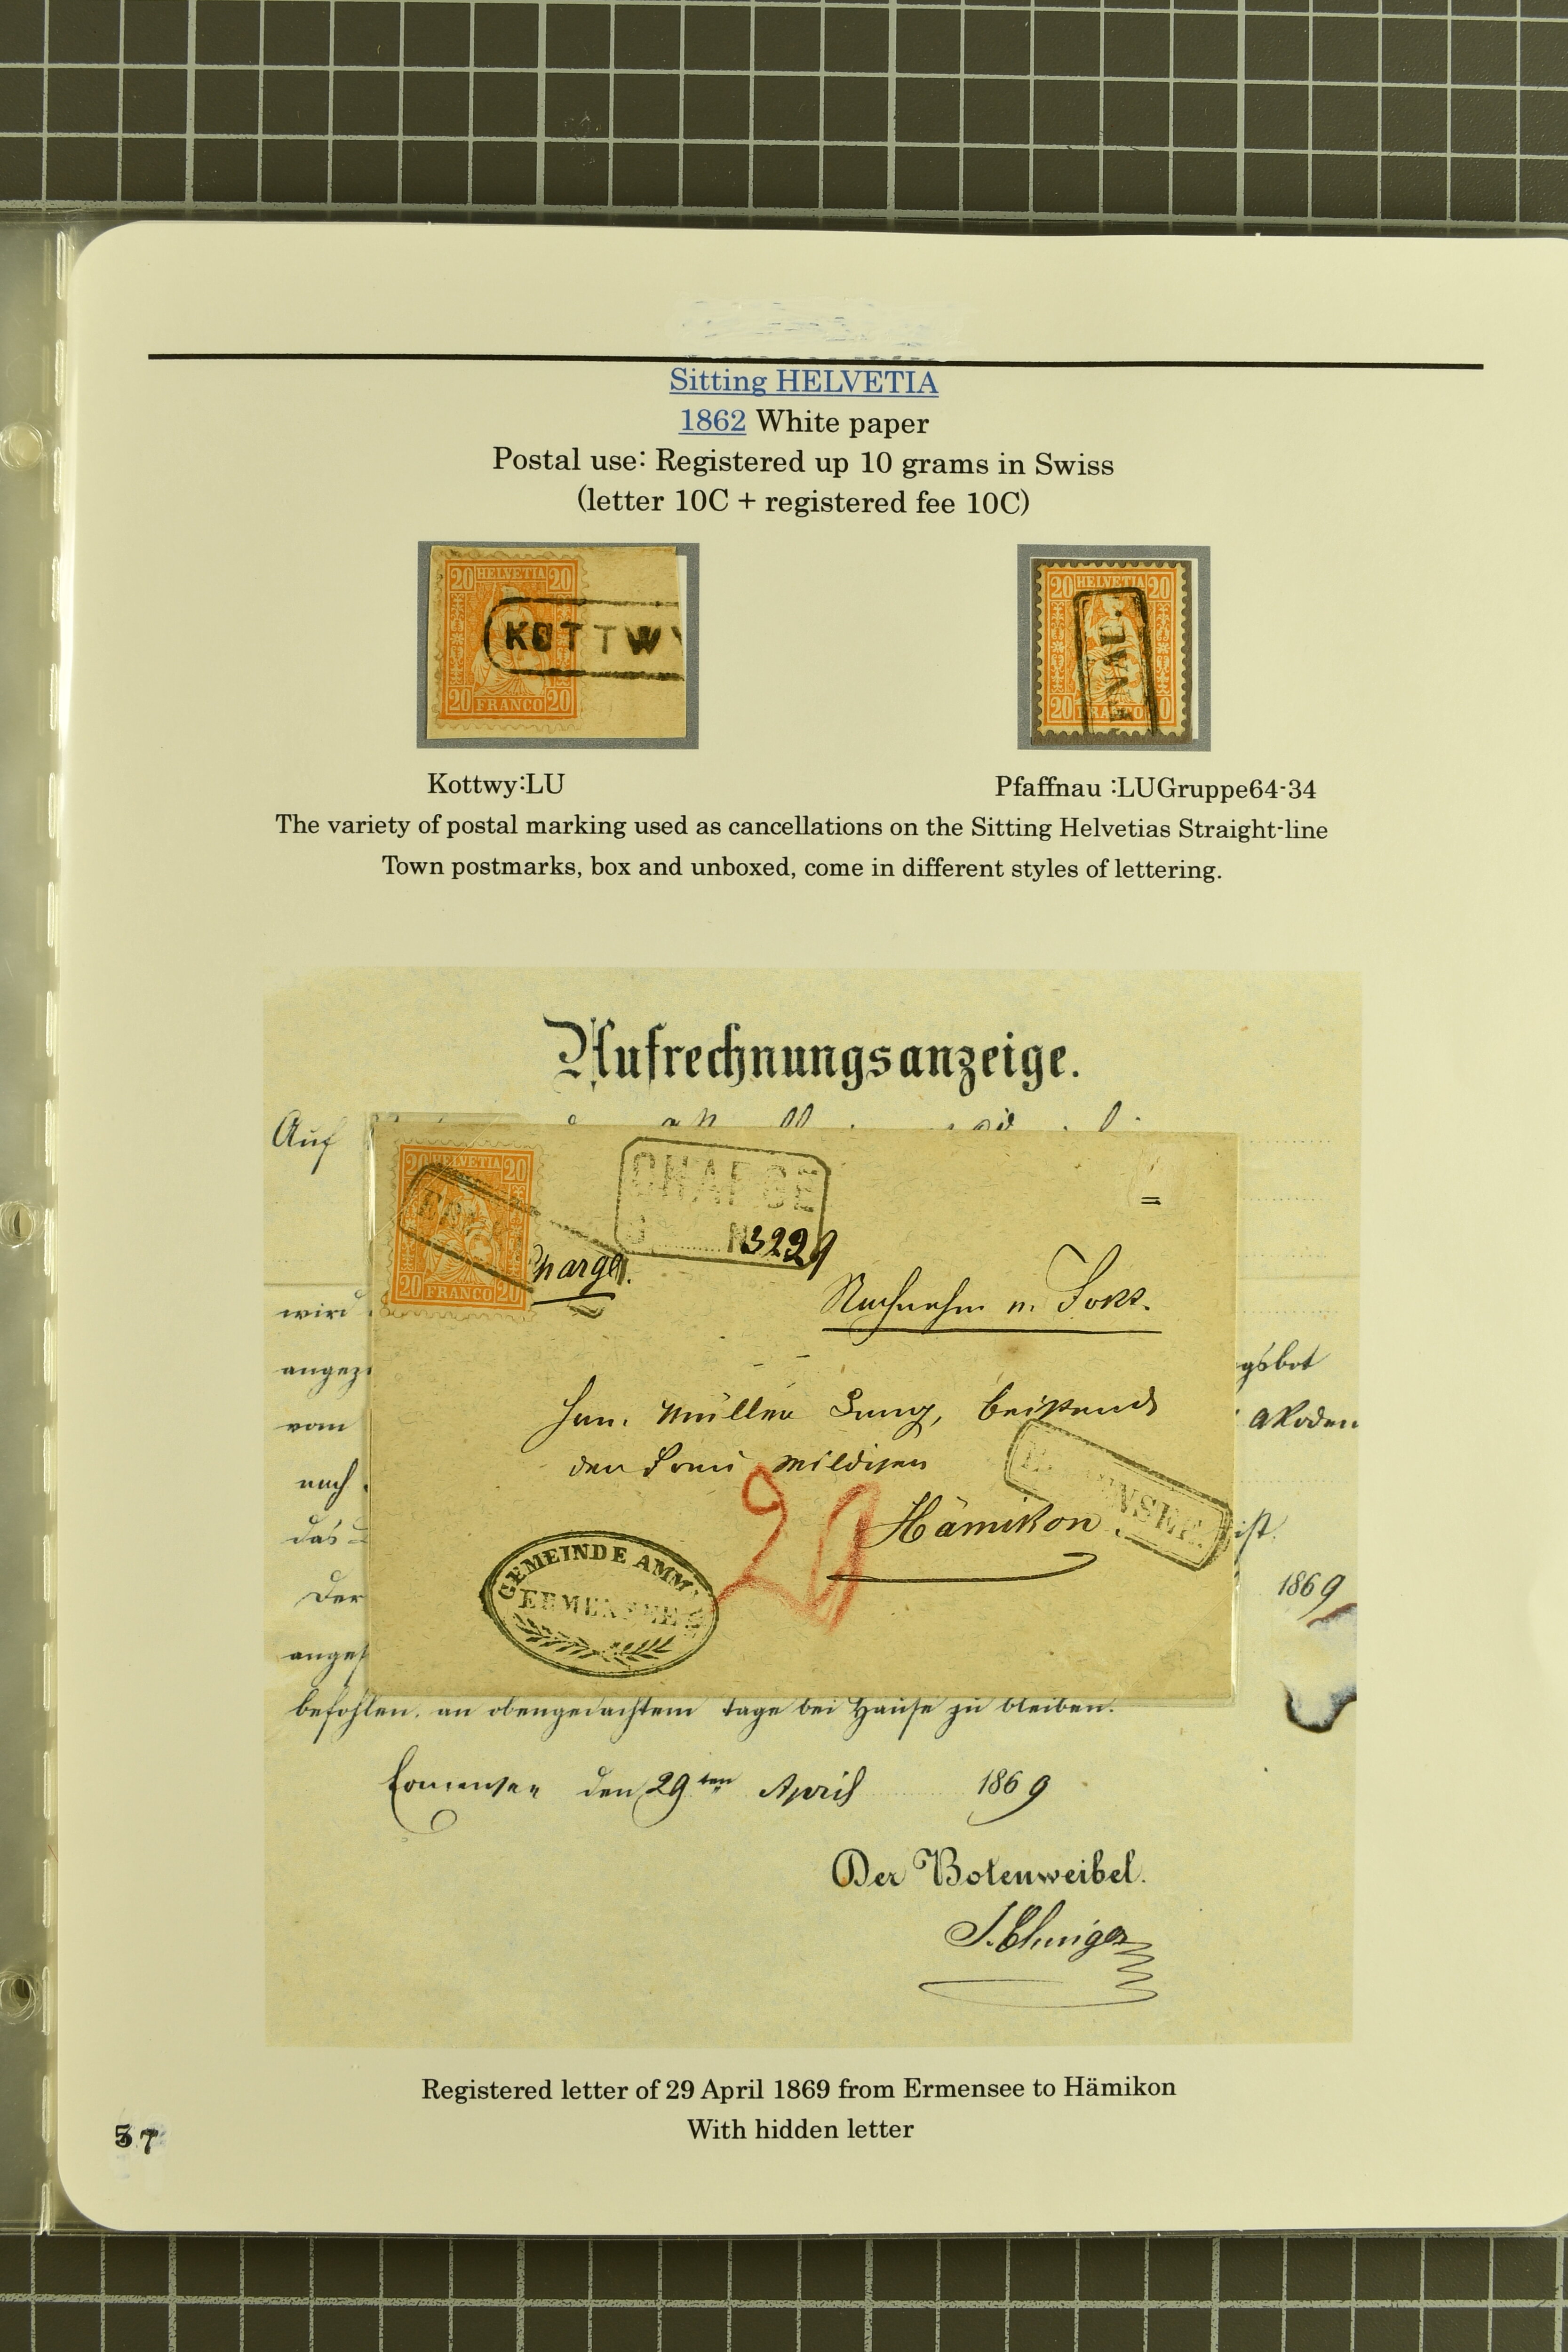 Sitting HELVETIA
1862 White paper
Postal use: Registered up 10 grams in Swiss
(letter 10C + registered fee 10C)
20 HELVETIA 20
KOTTWY
20 FRANCO 20
20 HELVETIA 20
20 FRANCO 20
Kottwy:LU
Pfaffnau :LUGruppe64-34
The variety of postal marking used as cancellations on the Sitting Helvetias Straight-line
Town postmarks, box and unboxed, come in different styles of lettering.
Aufrechnungsanzeige.
Auf
20 HELVETIA 20
20 FRANCO 20
CHARGE
N 3229
Chargé.
wird
angez
gsbot
vom
nach
das
ist.
Müller
Hämikon
20
GEMEINDE AMM
ERMENSEE
Der
1869
anges
befohlen, an obengedachtem Tage bei Hause zu bleiben.
Ermensee den 29ten April 1869
Der Botenweibel.
Registered letter of 29 April 1869 from Ermensee to Hämikon
With hidden letter
57